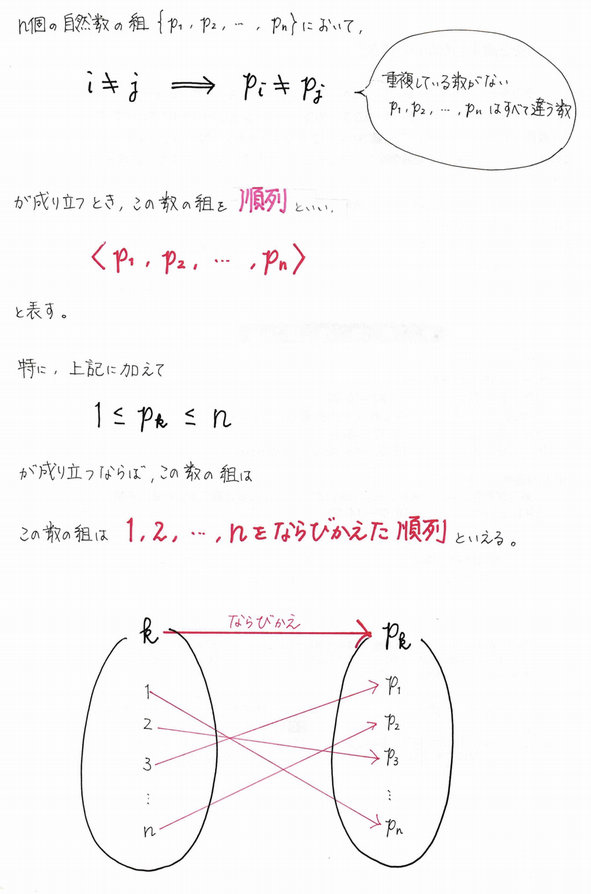 n個の自然数の組 {p₁, p₂, …, pₙ} において,
i ≠ j ⟹ pᵢ ≠ pⱼ
重複している数がない
p₁, p₂, …, pₙ はすべて違う数
が成り立つとき, この数の組を 順列 といい,
〈p₁, p₂, …, pₙ〉
と表す。
特に, 上記に加えて
1 ≤ pₖ ≤ n
が成り立つならば, この数の組は
この数の組は 1, 2, …, n をならびかえた 順列 といえる。
ならびかえ
k pₖ
1 p₁
2 p₂
3 p₃
⋮ ⋮
n pₙ